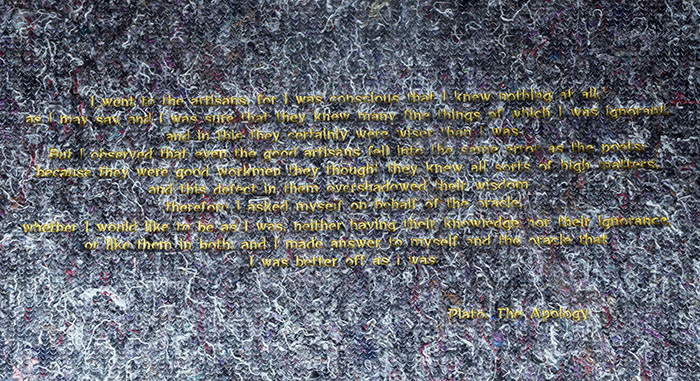 I went to the artisans, for I was conscious that I knew nothing at all,
as I may say and I was sure that they knew many fine things of which I was ignorant,
and in this they certainly were wiser than I was.
But I observed that even the good artisans fell into the same error as the poets;
because they were good workmen they thought they knew all sorts of high matters,
and this defect in them overshadowed their wisdom
therefore I asked myself on behalf of the oracle,
whether I would like to be as I was, neither having their knowledge nor their ignorance,
or like them in both; and I made answer to myself and the oracle that
I was better off as i was.
Plato, The Apology